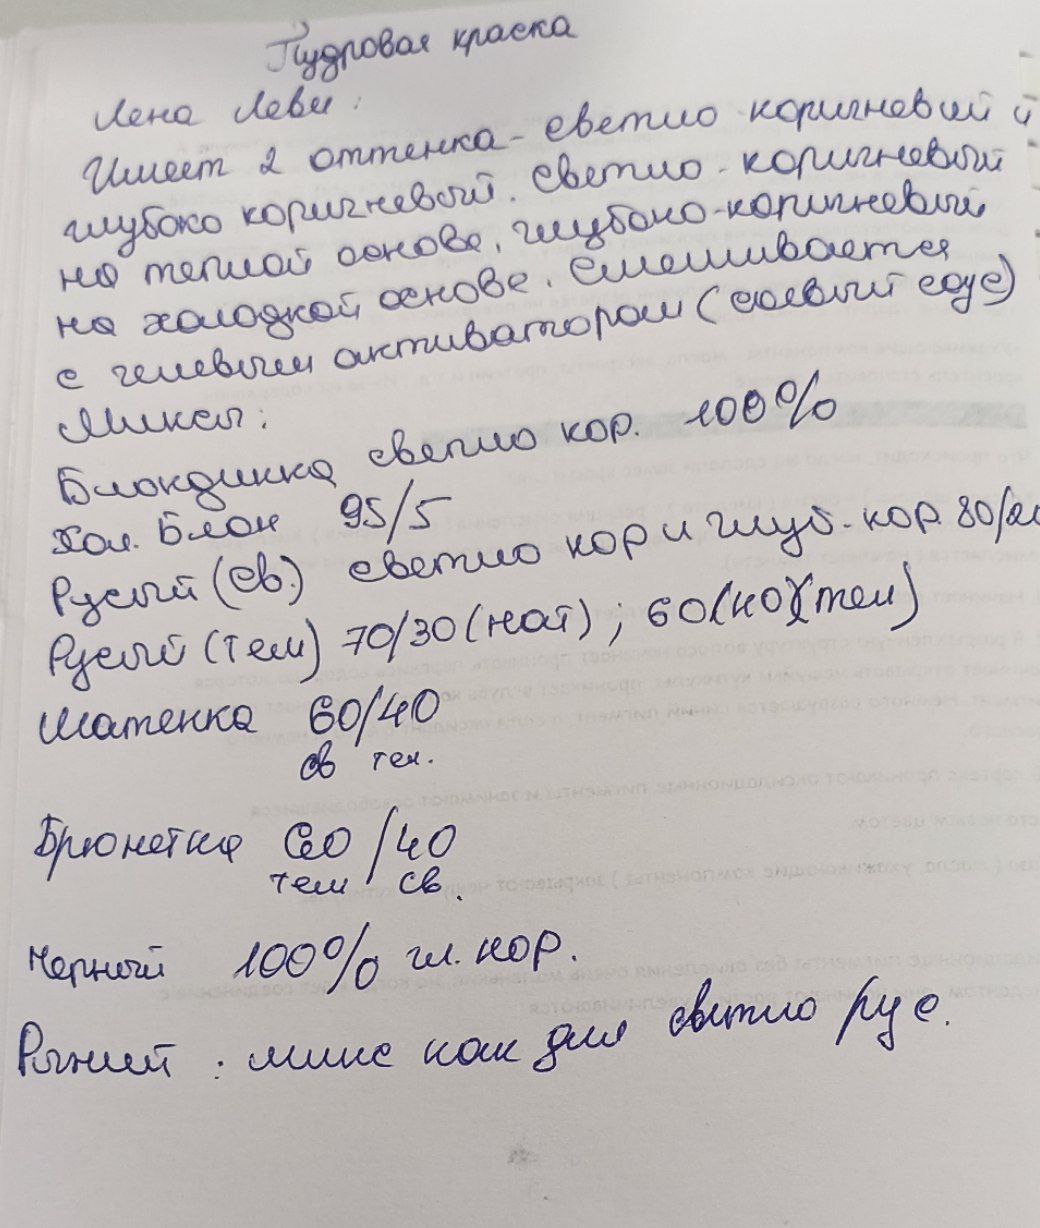 Пудровая краска
Лена Леви:
Имеет 2 оттенка - светло коричневый и
глубоко коричневый. Светло - коричневый
на теплой основе, глубоко-коричневый
на холодной основе. Смешивается
с гелевым активатором (соевый соус)
Миксы:
Блондинка светло кор. 100%
Хол. Блон 95/5
Русый (св.) светло кор и глуб. кор. 80/20
Русый (тем) 70/30 (нат) ; 60/40 (тем)
Шатенка 60/40
св тем.
Брюнетка 60/40
тем св.
Черный 100% гл. кор.
Рыжий : микс как для светло рус.